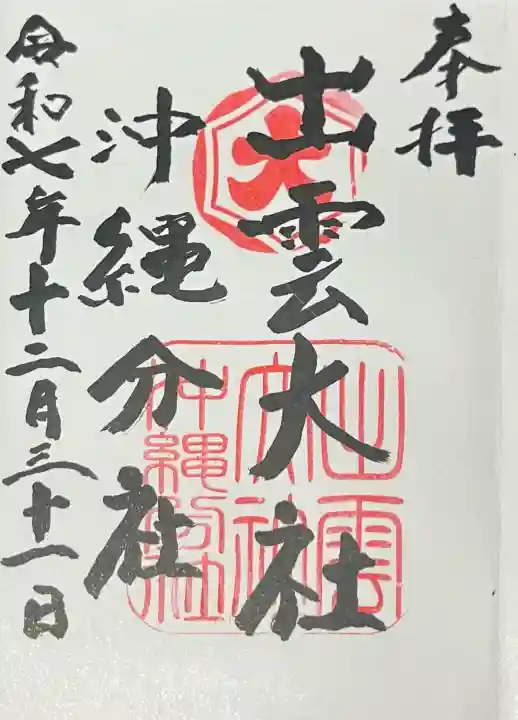 奉拝
出雲大社
沖縄分社
令和七年十二月三十一日
大
出雲
沖縄分社